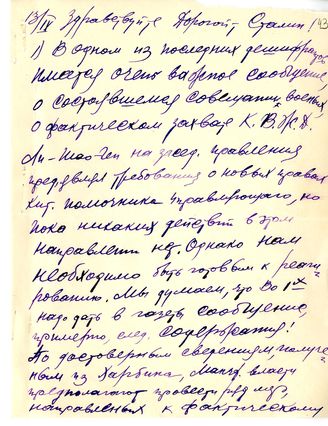 13/IX Здравствуйте Дорогой Сталин! 43
1) В одном из последних дешифрантов
имеется очень важное сообщение
о состоявшемся совещании военных
о фактическом захвате К.В.ж.д.
Ли-Шао-Ген на засед. правления
предъявил требования о новых правах
кит. помощника управляющего, но
пока никаких действий в этом
направлении нет. Однако нам
необходимо быть готовым к реаги-
рованию. Мы думаем, что во 1х
надо дать в газеты сообщение,
примерно, след. содержания!
По достоверным сведениям, получе-
ным из Харбина, Манчж. власти
предполагают провести ряд мер,
направленных к фактическому